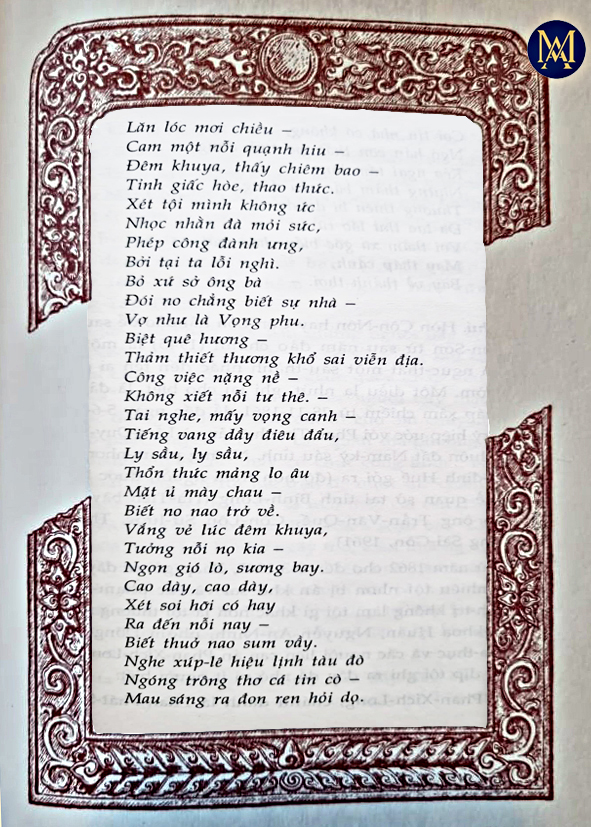 MA
Lăn lóc mơi chiều –
Cam một nỗi quạnh hiu –
Đêm khuya, thấy chiêm bao –
Tỉnh giấc hòe, thao thức.
Xét tội mình không ức
Nhọc nhằn đà mỏi sức,
Phép công đành ưng,
Bởi tại ta lỗi nghì.
Bỏ xứ sở ông bà
Đói no chẳng biết sự nhà –
Vợ như là Vọng phu.
Biệt quê hương –
Thảm thiết thương khổ sai viễn địa.
Công việc nặng nề –
Không xiết nỗi tư thê. –
Tai nghe, mấy vọng canh –
Tiếng vang dầy điêu đẩu,
Ly sầu, ly sầu,
Thổn thức mảng lo âu
Mặt ủ mày chau –
Biết no nao trở về.
Vắng vẻ lúc đêm khuya,
Tưởng nỗi nọ kia –
Ngọn gió lò, sương bay.
Cao dày, cao dày,
Xét soi hỡi có hay
Ra đến nỗi nay –
Biết thuở nao sum vầy.
Nghe xúp-lê hiệu lịnh tàu đò
Ngóng trông thơ cá tin cò –
Mau sáng ra đon ren hỏi dọ.